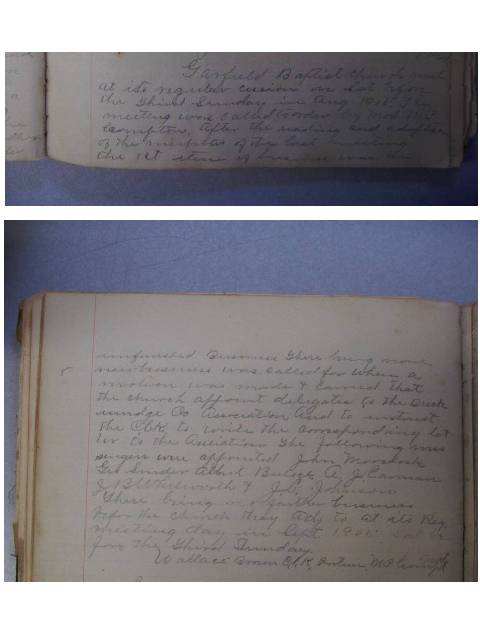 Garfield Baptist Church met
at its regular cession on Sat before
the Third Sunday in Aug 1905. The
meeting was called to order by Mod.
Compton, After the reading and adoption
of the minutes of the last meeting
the 1st item of business was the
unfinished Business There being none
new business was called for when a
motion was made & carried that
the church appoint delegates to the Breck
inridge Co Association And to instruct
the Clk to write the corresponding let
ter to the Association The following mes
sengers were appointed John
Geo A. J.
J B Whitworth & Johnson
There being no further business
before the church they adj to at its Reg
meeting day in Sept. 1905 Sat be
fore the Third Sunday.
Wallace Brown Clk,